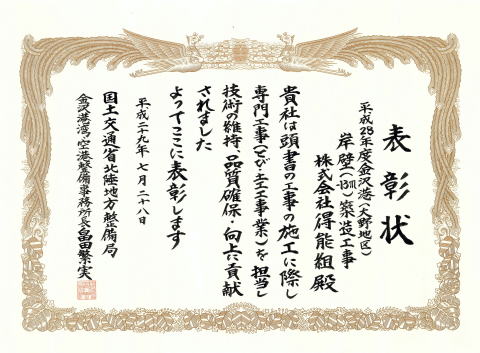 表彰状
平成28年度金沢港(大野地区)
岸壁(-13m)築造工事
株式会社得能組殿
貴社は頭書の工事の施工に際し
専門工事(とび・土工工事業)を担当し
技術の維持、品質確保・向上に貢献
されました
よってここに表彰します
平成二十九年七月二十八日
国土交通省北陸地方整備局
金沢港湾・空港整備事務所長畠田繁実